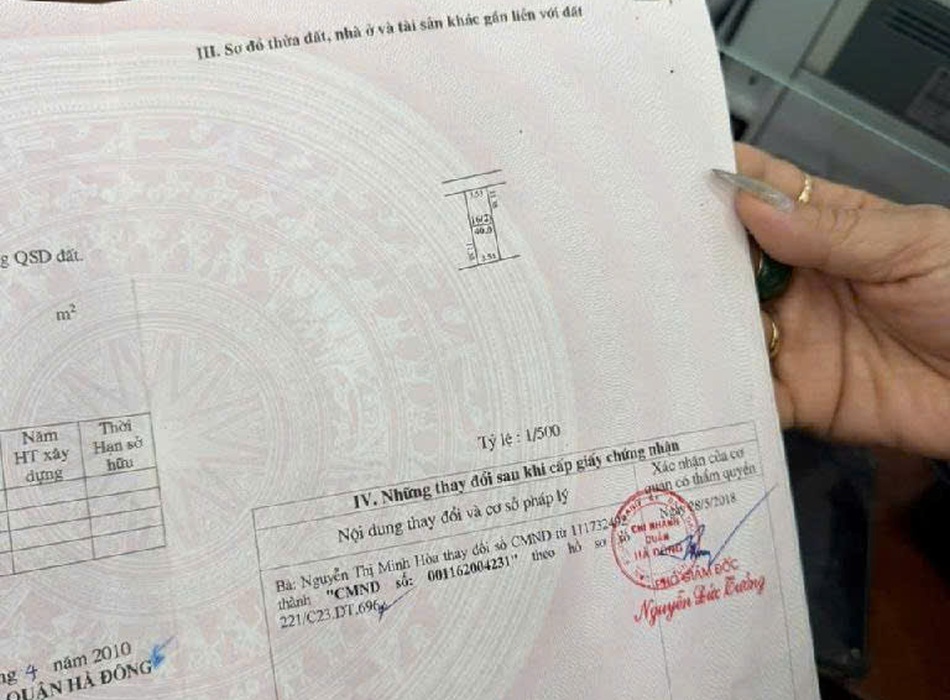 III. Sơ đồ thửa đất, nhà ở và tài sản khác gắn liền với đất
3.51
16(2)
40.0
3.51
g QSD đất.
m²
Năm HT xây dựng
Thời Hạn sở hữu
Tỷ lệ : 1/500
IV. Những thay đổi sau khi cấp giấy chứng nhận
Nội dung thay đổi và cơ sở pháp lý
Xác nhận của cơ quan có thẩm quyền
Bà: Nguyễn Thị Minh Hòa thay đổi số CMND từ
thành "CMND số: 001162004231" theo hồ sơ số
221/C23.DT.696
Ngày 28/5/2018
CHI NHÁNH
QUẬN
HÀ ĐÔNG
PHÓ GIÁM ĐỐC
Nguyễn Đức Tưởng
ng 4 năm 2010
QUẬN HÀ ĐÔNG